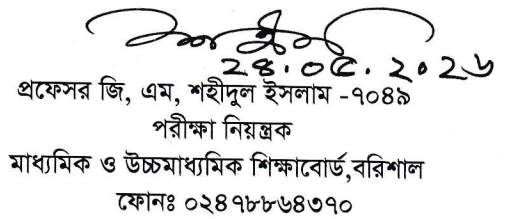 ২৪.০৫.২০২৬
প্রফেসর জি, এম, শহীদুল ইসলাম -৭০৪৯
পরীক্ষা নিয়ন্ত্রক
মাধ্যমিক ও উচ্চমাধ্যমিক শিক্ষাবোর্ড,বরিশাল
ফোনঃ ০২৪৭৮৮৬৪৩৭০